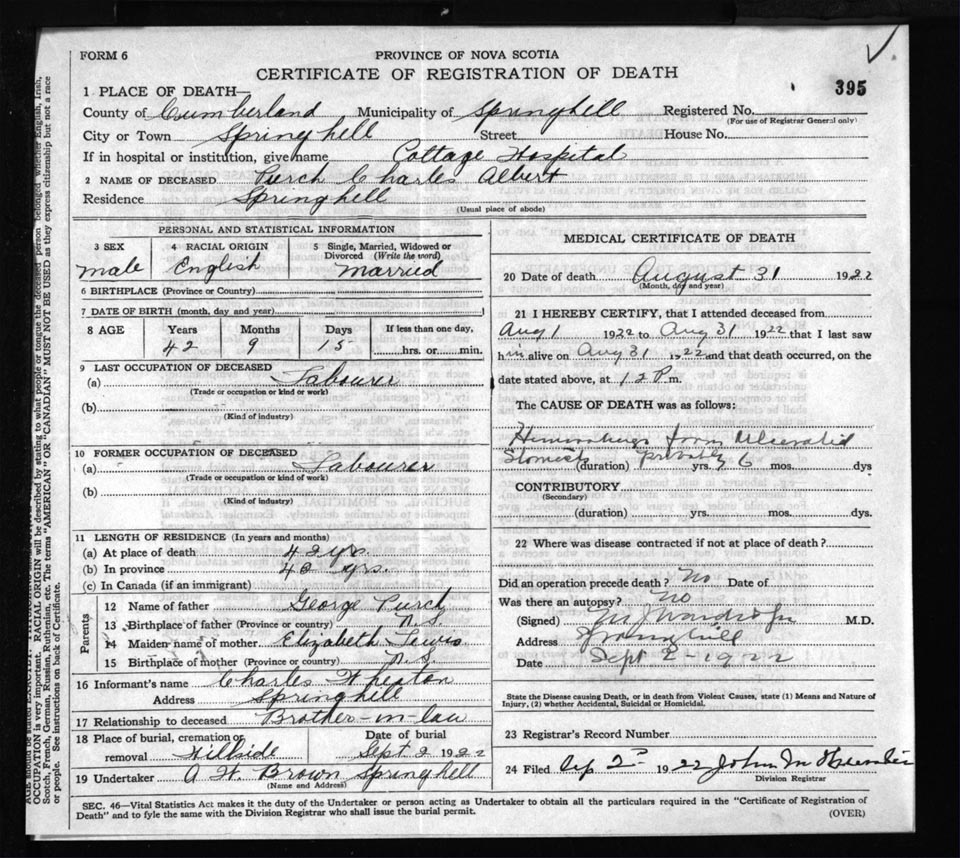 FORM 6
PROVINCE OF NOVA SCOTIA
CERTIFICATE OF REGISTRATION OF DEATH
395
1 PLACE OF DEATH—
County of Cumberland Municipality of Springhell Registered No.
(For use of Registrar General only)
City or Town Springhell Street House No.
If in hospital or institution, give name Cottage Hospital
2 NAME OF DECEASED Purch Charles Albert
Residence Springhell
(Usual place of abode)
PERSONAL AND STATISTICAL INFORMATION
3 SEX 4 RACIAL ORIGIN 5 Single, Married, Widowed or
Divorced (Write the word)
male English married
6 BIRTHPLACE (Province or Country)
7 DATE OF BIRTH (month, day and year)
8 AGE Years Months Days If less than one day,
42 9 15 hrs. or min.
9 LAST OCCUPATION OF DECEASED
(a) Labourer
(Trade or occupation or kind or work)
(b)
(Kind of industry)
10 FORMER OCCUPATION OF DECEASED
(a) Labourer
(Trade or occupation or kind of work)
(b)
(Kind of industry)
11 LENGTH OF RESIDENCE (In years and months)
(a) At place of death 42 yrs.
(b) In province yrs.
(c) In Canada (if an immigrant)
Parents
12 Name of father George Purch
13 Birthplace of father (Province or country) N.S.
14 Maiden name of mother Elizabeth Lewis
15 Birthplace of mother (Province or country) N.S.
16 Informant's name Charles Wheaton
Address Springhell
17 Relationship to deceased Brother-in-law
18 Place of burial, cremation or Date of burial
removal Hillside Sept 2 1922
19 Undertaker A. W. Brown Springhell
(Name and Address)
MEDICAL CERTIFICATE OF DEATH
20 Date of death August 31 1922
(Month, day and year)
21 I HEREBY CERTIFY, that I attended deceased from
Aug 1 1922 to Aug 31 1922 that I last saw
him alive on Aug 31 1922 and that death occurred, on the
date stated above, at 12 P. m.
The CAUSE OF DEATH was as follows:
Hemorrhage from Ulcerated
Stomach (duration) probably yrs. 6 mos. dys
CONTRIBUTORY
(Secondary)
(duration) yrs. mos. dys.
22 Where was disease contracted if not at place of death?
Did an operation precede death? No Date of
Was there an autopsy? No
(Signed) M.D.
Address Springhill
Date Sept 2-1922
State the Disease causing Death, or in death from Violent Causes, state (1) Means and Nature of
Injury, (2) whether Accidental, Suicidal or Homicidal.
23 Registrar's Record Number
24 Filed Sep 2 1922 John M
Division Registrar
SEC. 46—Vital Statistics Act makes it the duty of the Undertaker or person acting as Undertaker to obtain all the particulars required in the "Certificate of Registration of
Death" and to fyle the same with the Division Registrar who shall issue the burial permit. (OVER)
OCCUPATION is very important. RACIAL ORIGIN will be described by stating to what people or tongue the deceased person belonged whether English, Irish,
Scotch, French, German, Russian, Ruthunian, etc. The terms "AMERICAN" OR "CANADIAN" MUST NOT BE USED as they express citizenship but not a race
or people. See instructions on back of Certificate.